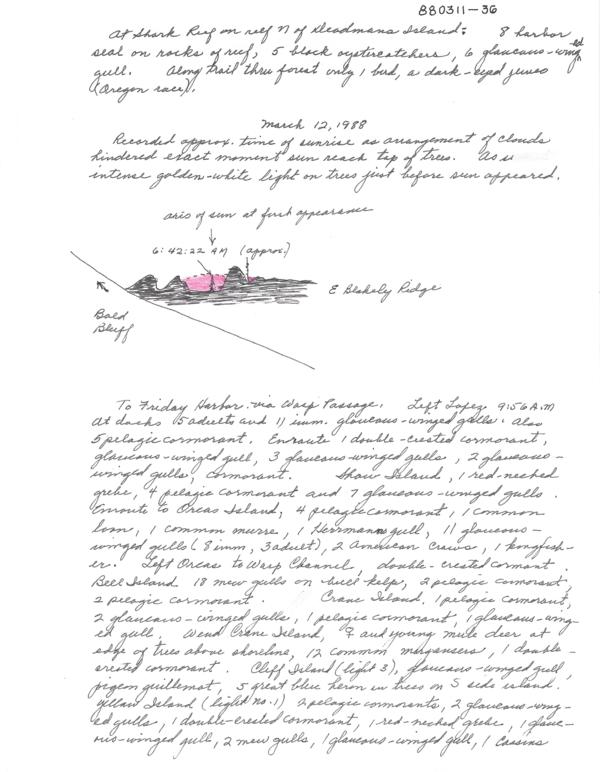 880311-36
At Shark Reef on reef N of Deadmans Island: 8 harbor
seal on rocks of reef, 5 black oystercatchers, 6 glaucous-winged
gull. Along trail thru forest only 1 bird, a dark-eyed junco
(Oregon race).
March 12, 1988
Recorded approx. time of sunrise as arrangement of clouds
hindered exact moment sun reach top of trees. As
intense golden-white light on trees just before sun appeared.
axis of sun at first appearance
6:42:22 AM (approx.)
E Blakely Ridge
Bald
Bluff
To Friday Harbor via Wasp Passage. Left Lopez 9:56 A.M
At docks 15 adults and 11 imm. glaucous-winged gulls. Also
5 pelagic cormorant. Enroute 1 double-crested cormorant,
glaucous-winged gull, 3 glaucous-winged gulls, 2 glaucous-
winged gulls, cormorant. Shaw Island, 1 red-necked
grebe, 4 pelagic cormorant and 7 glaucous-winged gulls.
Enroute to Orcas Island, 4 pelagic cormorant, 1 common
loon, 1 common murre, 1 Herrmann gull, 11 glaucous-
winged gulls (8 imm, 3 adult), 2 American Crows, 1 kingfish-
er. Left Orcas to Wasp Channel, double-crested cormant.
Bell Island 18 mew gulls on bull kelp, 2 pelagic cormorant,
2 pelagic cormorant. Crane Island. 1 pelagic cormorant,
2 glaucous-winged gulls, 1 pelagic cormorant, 1 glaucous-wing-
ed gull. Wend Crane Island, ♀ and young mule deer at
edge of trees above shoreline, 12 common mergansers, 1 double-
crested cormorant. Cliff Island (light 3), glaucous-winged gull,
pigeon guillemot, 5 great blue heron in trees on S side island.
Yellow Island (light no. 1) 2 pelagic cormorants, 2 glaucous-wing-
ed gulls, 1 double-crested cormorant, 1 red-necked grebe, 1 glauc-
ous-winged gull, 2 mew gulls, 1 glaucous-winged gull, 1 Cassins